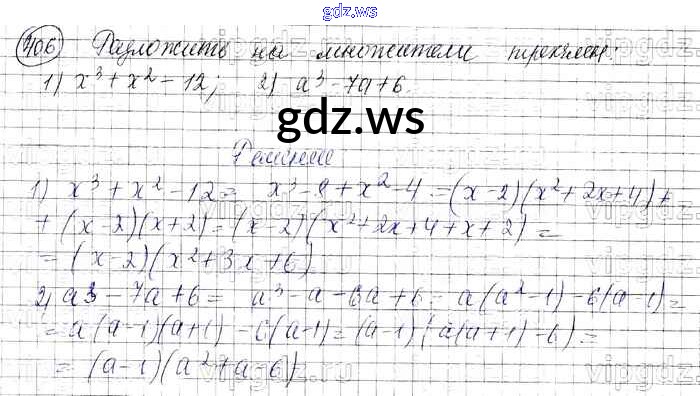 gdz.ws
406 Разложить на множители трехчлен:
1) x³ + x² - 12; 2) a³ - 7a + 6.
gdz.ws
Решение
1) x³ + x² - 12 = x³ - 8 + x² - 4 = (x - 2)(x² + 2x + 4) +
+ (x - 2)(x + 2) = (x - 2)(x² + 2x + 4 + x + 2) =
= (x - 2)(x² + 3x + 6)
2) a³ - 7a + 6 = a³ - a - 6a + 6 = a(a² - 1) - 6(a - 1) =
= a(a - 1)(a + 1) - 6(a - 1) = (a - 1)(a(a + 1) - 6) =
= (a - 1)(a² + a - 6)
vipgdz.ru